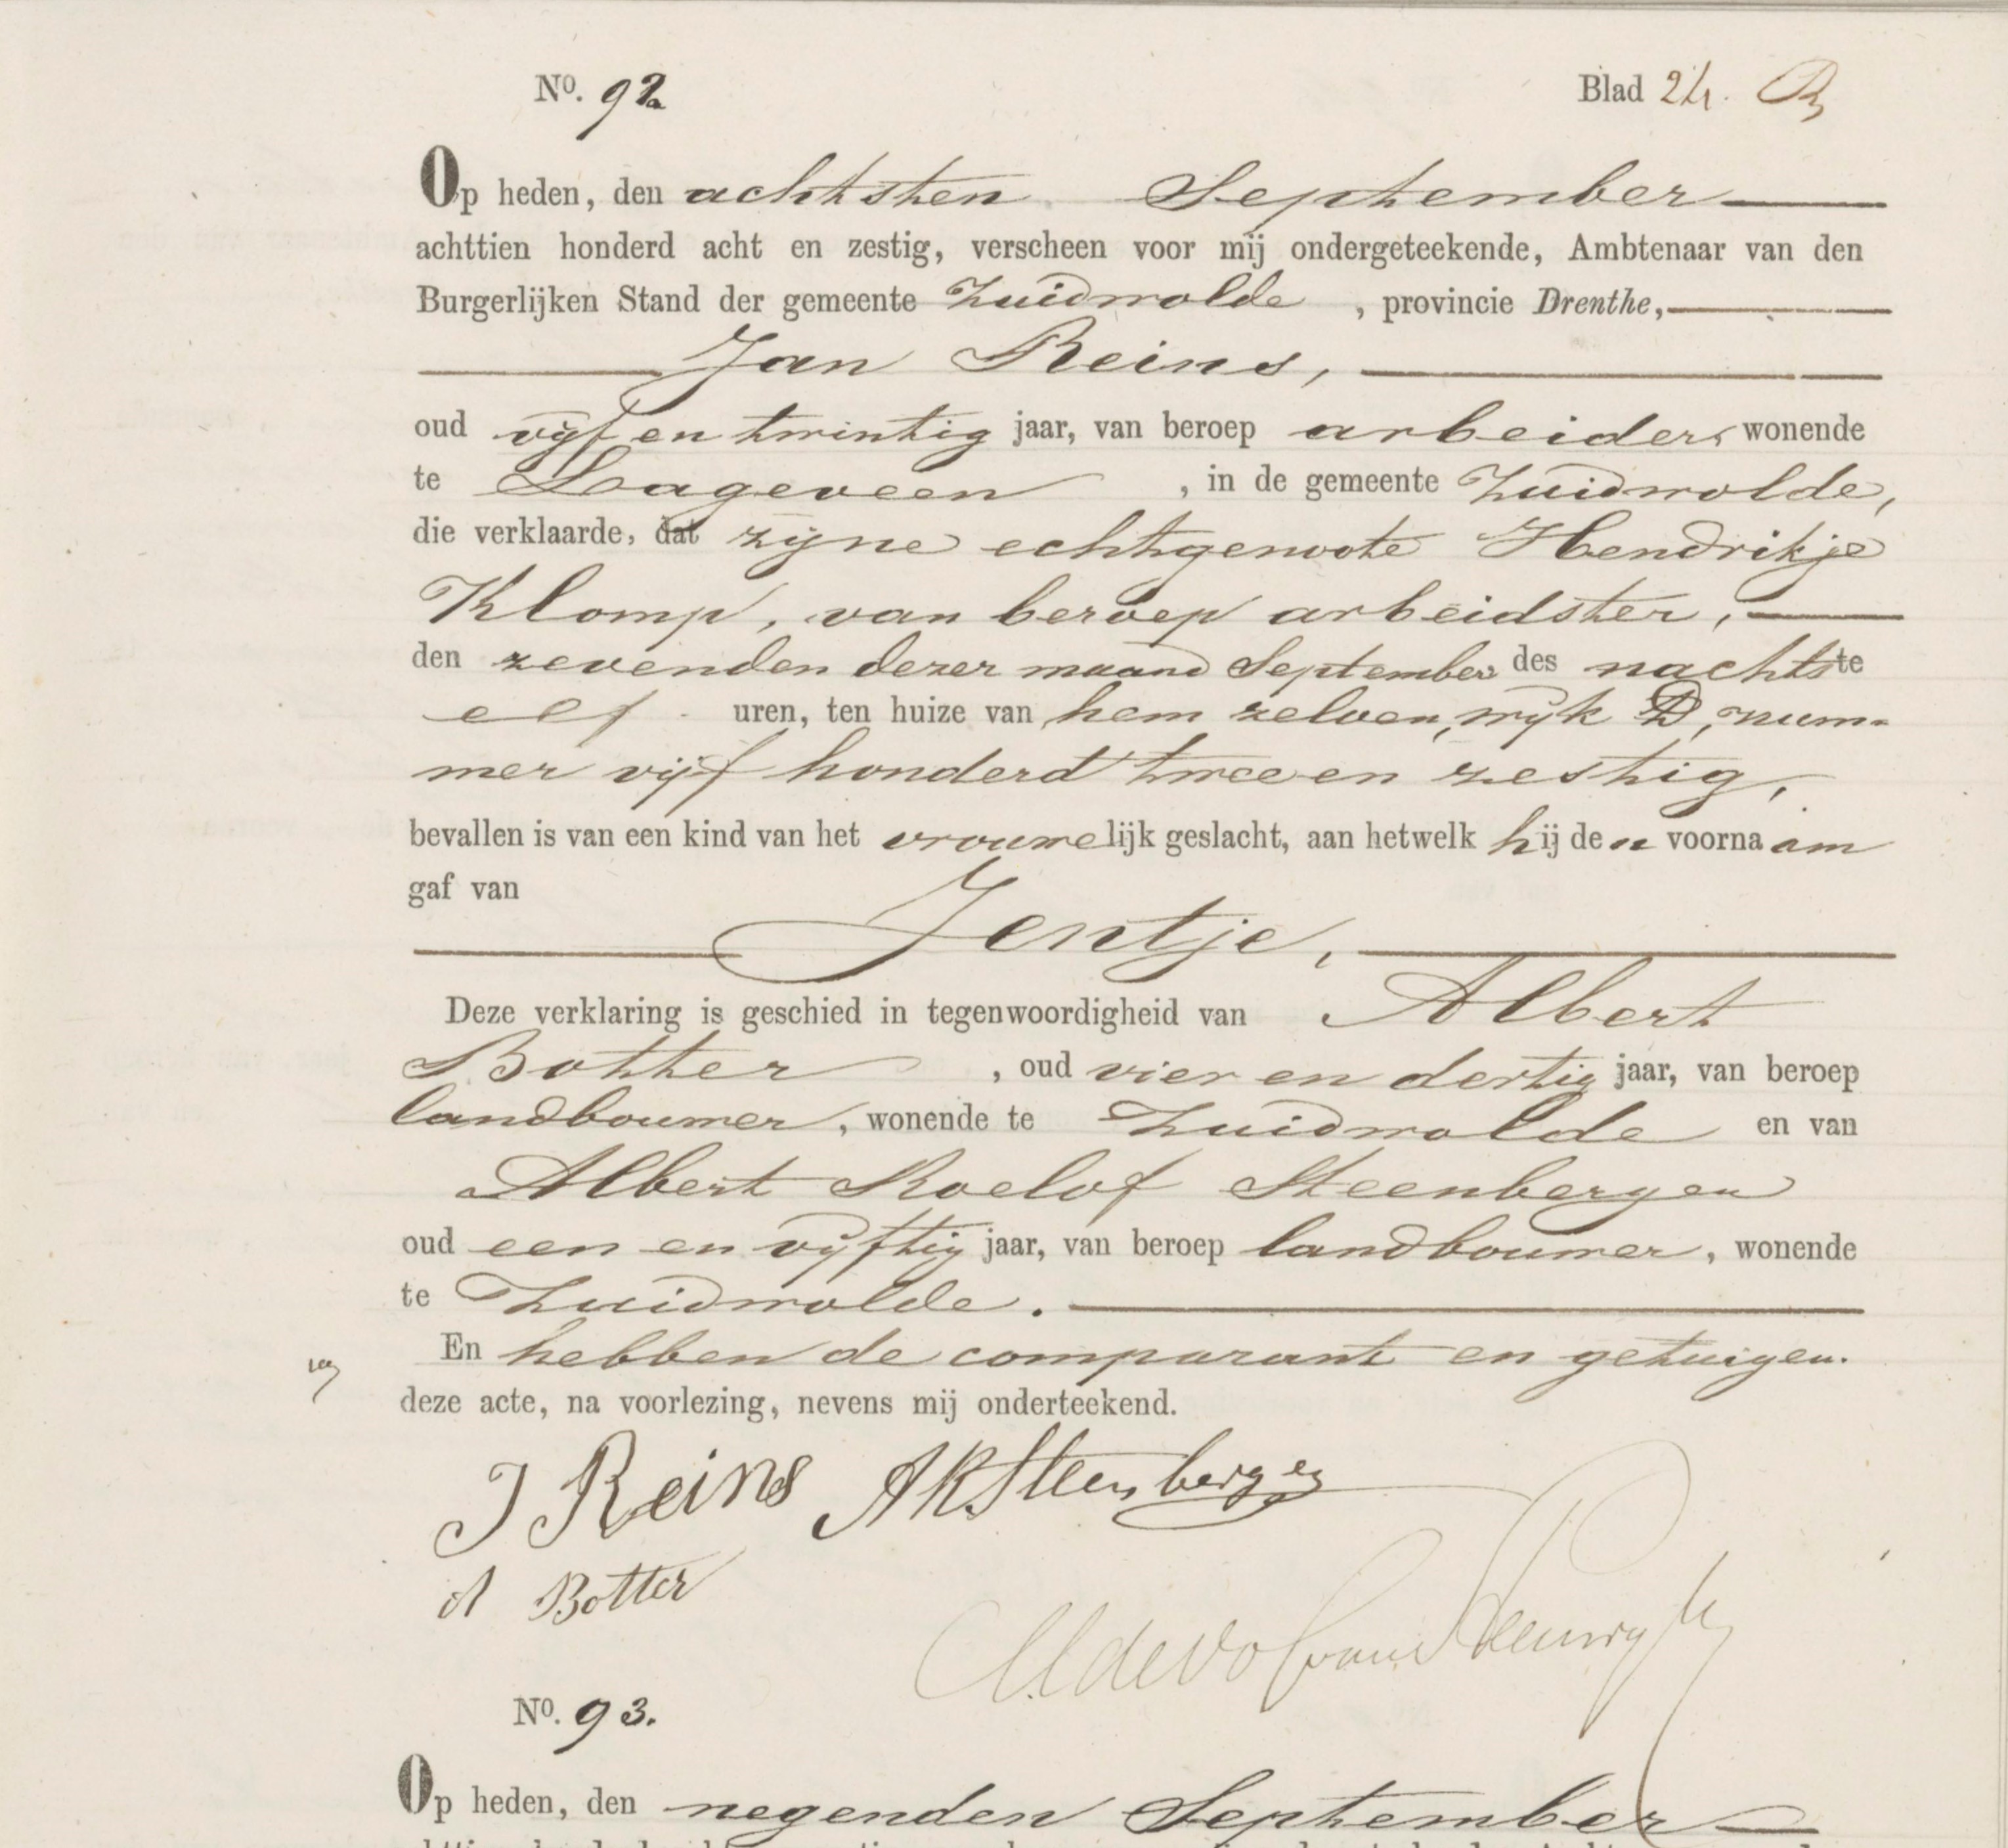 No. 92 Blad 24.
Op heden, den achtsten September
achttien honderd acht en zestig, verscheen voor mij ondergeteekende, Ambtenaar van den
Burgerlijken Stand der gemeente Zuidwolde, provincie Drenthe,
Jan Reins,
oud vijf en twintig jaar, van beroep arbeider, wonende
te Lageveen, in de gemeente Zuidwolde,
die verklaarde, dat zijne echtgenoote Hendrikje
Klomp, van beroep arbeidster,
den zevenden dezer maand September des nachts te
elf uren, ten huize van hem zelven, wijk D, num-
mer vijf honderd twee en zestig,
bevallen is van een kind van het vrouwelijk geslacht, aan hetwelk hij den voornaam
gaf van
Jentje,
Deze verklaring is geschied in tegenwoordigheid van Albert
Botter, oud vier en dertig jaar, van beroep
landbouwer, wonende te Zuidwolde en van
Albert Roelof Steenbergen
oud een en vijftig jaar, van beroep landbouwer, wonende
te Zuidwolde.
En hebben de comparant en getuigen.
deze acte, na voorlezing, nevens mij onderteekend.
J Reins AR Steenbergen
A Botter
No. 93.
Op heden, den negenden September